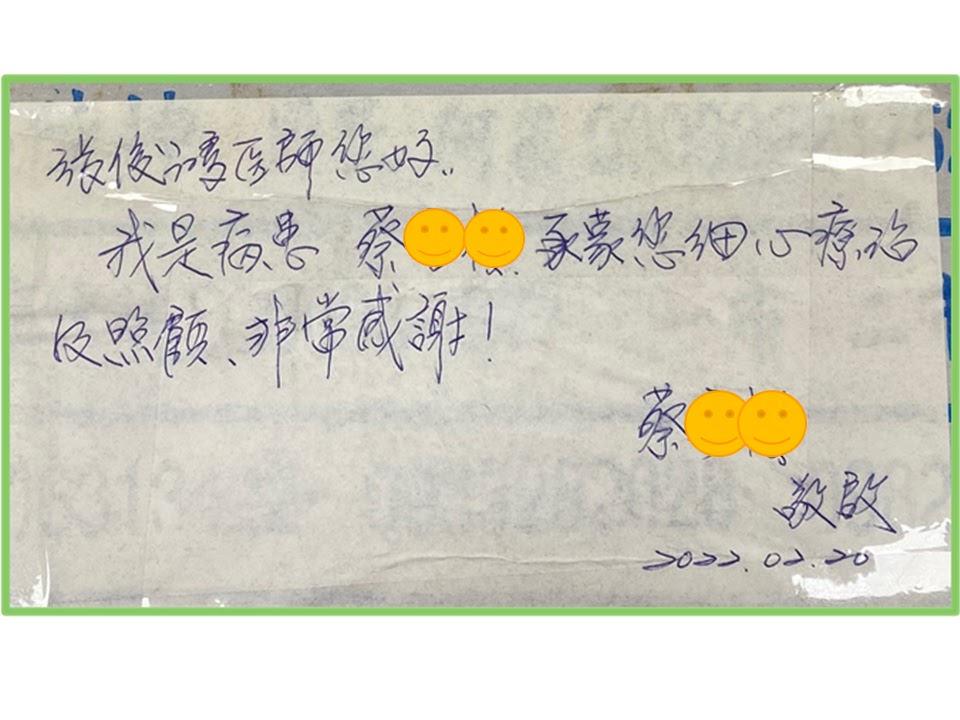 张俊凌医師您好..
我是病患 蔡 承蒙您細心療治
及照顧、非常感謝!
蔡
敬啟
2022.02.20